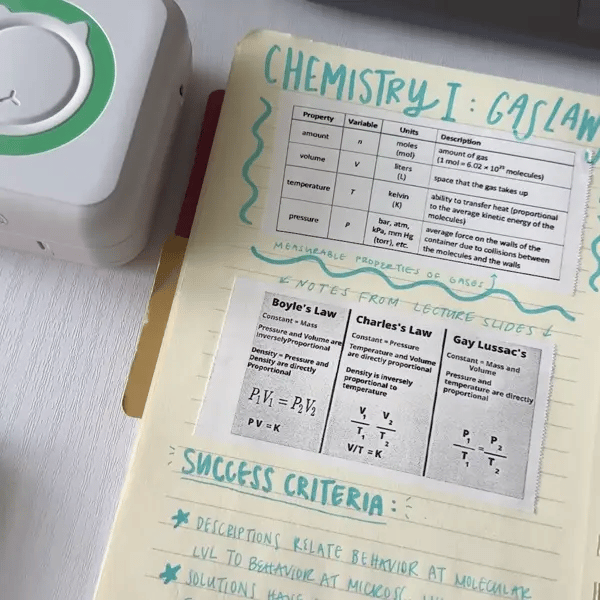 CHEMISTRY I: GAS LAW
Property Variable Units Description
amount n moles (mol) amount of gas (1 mol = 6.02 × 10²³ molecules)
volume V liters (L) space that the gas takes up
temperature T kelvin (K) ability to transfer heat (proportional to the average kinetic energy of the molecules)
pressure P bar, atm, kPa, mm Hg (torr), etc. average force on the walls of the container due to collisions between the molecules and the walls
MEASURABLE PROPERTIES OF GASES
NOTES FROM LECTURE SLIDES
Boyle's Law
Constant = Mass
Pressure and Volume are
InverselyProportional
Density = Pressure and
Density are directly
Proportional
P₁V₁ = P₂V₂
PV = K
Charle's Law
Constant = Pressure
Temperature and Volume
are directly proportional
Density is inversely
proportional to
temperature
V₁ V₂
T₁ T₂
V/T = K
Gay Lussac's
Constant = Mass and
Volume
Pressure and
temperature are directly
proportional
P₁ = P₂
T₁ T₂
SUCCESS CRITERIA:
DESCRIPTIONS RELATE BEHAVIOR AT MOLECULAR
LVL TO BEHAVIOR AT
SOLUTIONS